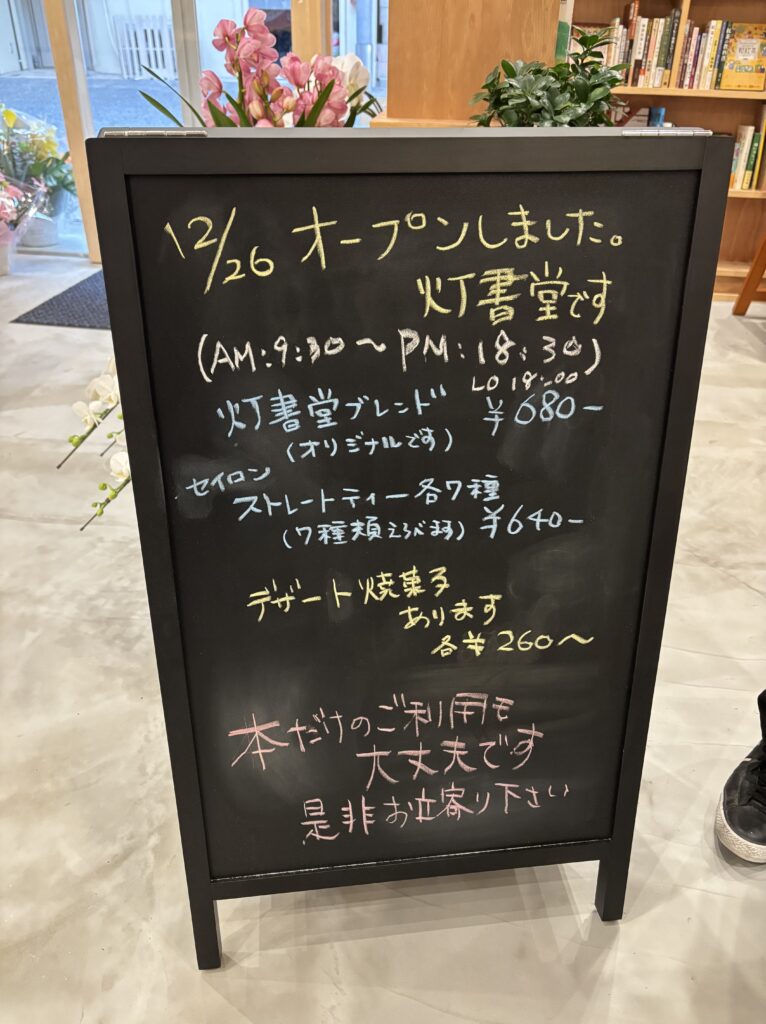 12/26 オープンしました。
灯書堂です
(AM:9:30～PM:18:30)
LO 18:00
灯書堂ブレンド ¥680-
(オリジナルです)
セイロン
ストレートティー各7種
(7種類えらべます) ¥640-
デザート焼菓子
あります
各¥260～
本だけのご利用も
大丈夫です
是非お立寄り下さい